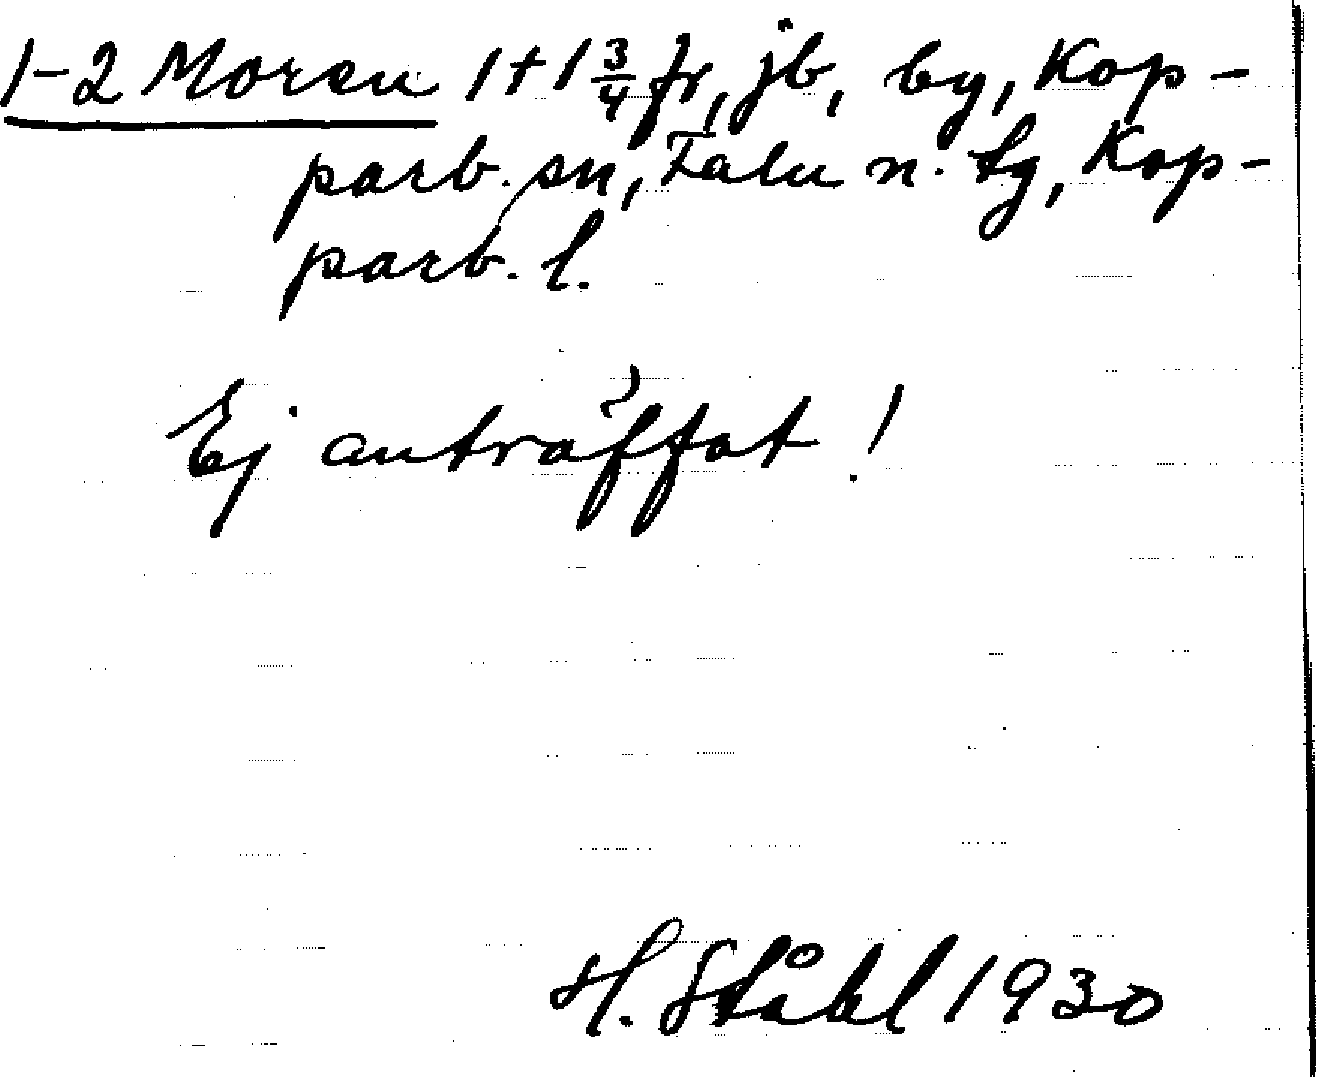 1-2 Moren 1+1 3/4 fr, jb, by, Kop-
parb. sn, Falu n. tg, Kop-
parb. l.
Ej anträffat!
H. Ståhl 1930